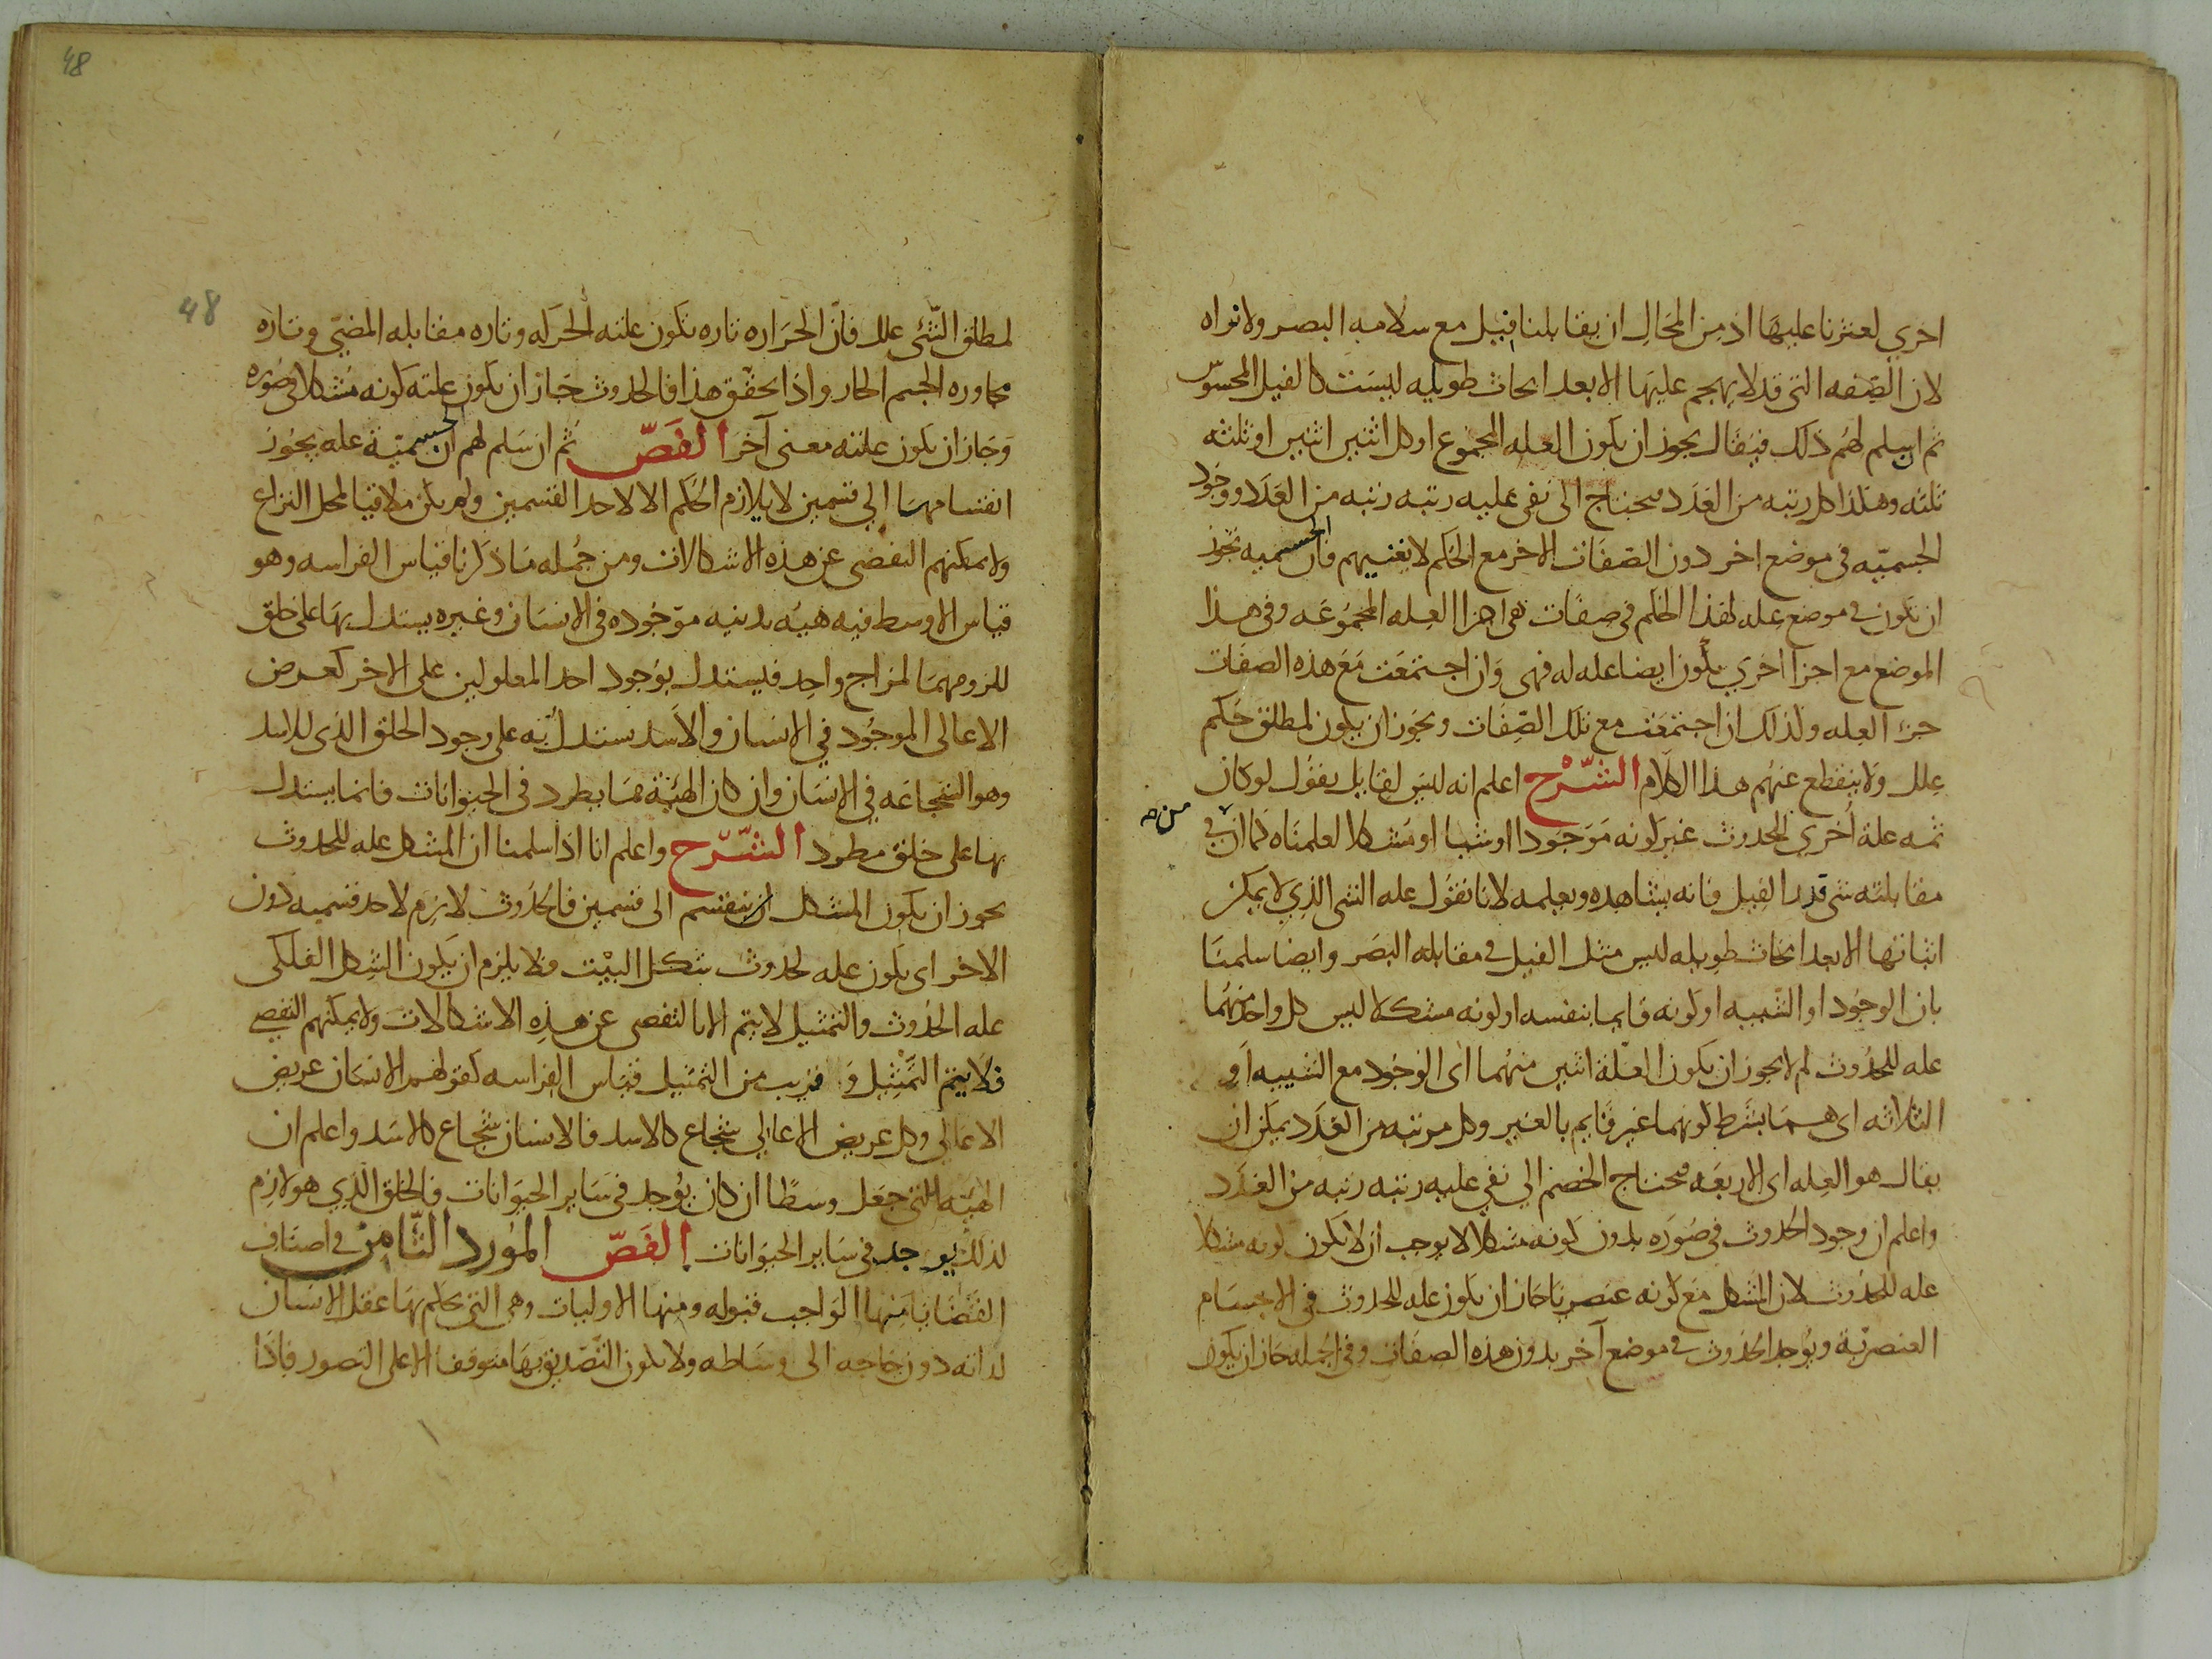 اخرى لعثرنا عليها اذ من المحال ان يقابلنا فيل مع سلامه البصر ولا نراه
لان الصفه التى قد لا يهجم عليها الا بعد ابحاث طويله ليست كالفيل المحسوس
ثم ان سلم لهم ذلك فيقال يجوز ان يكون العله المجموع او كل اثنين اثنين او ثلثه
ثلثه وهكذا كل رتبه من العدد محتاج الى نفى عليه رتبه رتبه من العدد ووجود
الجسميه فى موضع اخر دون الصفات الاخر مع الحكم لا يغنيهم فان الجسميه تجوز
ان تكون فى موضع عله لهذا الحكم فى صفات هى اجزا العله المجموعه وفى هذا
الموضع مع اجزا اخرى تكون ايضا عله له فهى وان اجتمعت مع هذه الصفات
جزء العله وكذلك ان اجتمعت مع تلك الصفات ويجوز ان يكون لمطلق حكم
علل ولا ينقطع عنهم هذا الكلام الشرح اعلم انه ليس لقايل يقول لو كان
ثمه علة اخرى للحدوث غير كونه موجودا او شيا او مشكلا لعلمناه كما ان فى
من صح
مقابلته شى قدر الفيل فانه يشاهده ويعلمه لانا نقول عله الشى الذي لا يمكن
اثباتها الا بعد ابحاث طويله ليس مثل الفيل فى مقابله البصر وايضا سلمنا
بان الوجود او الشييه او كونه قايما بنفسه او كونه مشكلا ليس كل واحد منهما
عله للحدوث لم لا يجوز ان يكون العلة اثنين منهما اى الوجود مع الشييه او
الثلاثه اى هما بشرط كونهما غير قايم بالغير وكل مرتبه من العدد يمكن ان
يقال هو العله اى الاربعه محتاج الخصم الى نفى عليه رتبه رتبه من العدد
واعلم ان وجود الحدوث فى صوره بدون كونه مشكلا لا يوجب ان لا يكون كونه مشكلا
عله للحدوث لان الشكل مع كونه عنصريا جاز ان يكون عله للحدوث فى الاجسام
العنصرية ويوجد الحدوث فى موضع آخر بدون هذه الصفات وفى الجمله جاز ان يكون
48
48
لمطلق الشئ علل فان الحراره تاره تكون علته الحركه وتاره مقابله المضى وتاره
مجاوره الجسم الحار واذا تحقق هذا فالحدوث جاز ان يكون علته كونه مشكلا فى صوره
وجاز ان يكون علته معنى آخر الفص ثم ان سلم لهم ان الجسمية عله يجوز
انقسامهما الى قسمين لا يلازم الحكم الا لاحد القسمين ولم يكن ملاقيا لمحل النزاع
ولا يمكنهم التفصى عن هذه الاشكالات ومن جمله ما ذكرنا قياس الفراسه وهو
قياس الاوسط فيه هيئه بدنيه موجوده فى الانسان وغيره يستدل بها على خلق
للزومهما لمزاج واحد فيستدل بوجود احد المعلولين على الاخر كعرض
الاعالى الموجود فى الانسان والاسد يستدل به على وجود الخلق الذى للاسد
وهو الشجاعه فى الانسان وان كان الهيئة مما يطرد فى الحيوانات فانما يستدل
بها على خلق مطرد الشرح واعلم انا اذا سلمنا ان الشكل عله للحدوث
يجوز ان يكون الشكل ان ينقسم الى قسمين فالحدوث لازم لاحد قسميه دون
الاخر اى يكون عله لحدوث شكل البيت فلا يلزم ان يكون الشكل الفلكى
عله الحدوث والتمثيل لا يتم الا بالتفصى عن هذه الاشكالات ولا يمكنهم التفصى
فلا يتم التمثيل و قريب من التمثيل قياس الفراسه كقولهم الانسان عريض
الاعالى وكل عريض الاعالى شجاع كالاسد فالانسان شجاع كالاسد واعلم ان
الهيئه التى جعل وسطا ان كان يوجد فى ساير الحيوانات فالخلق الذي هو لازم
لذلك يوجد فى ساير الحيوانات الفص المورد الثامن فى اصناف
القضايا منها الواجب قبوله ومنها الاوليات وهى التى يحكم بها عقل الانسان
لذاته دون حاجه الى وساطه ولا يكون التصديق بها متوقفا الا على التصور فاذا